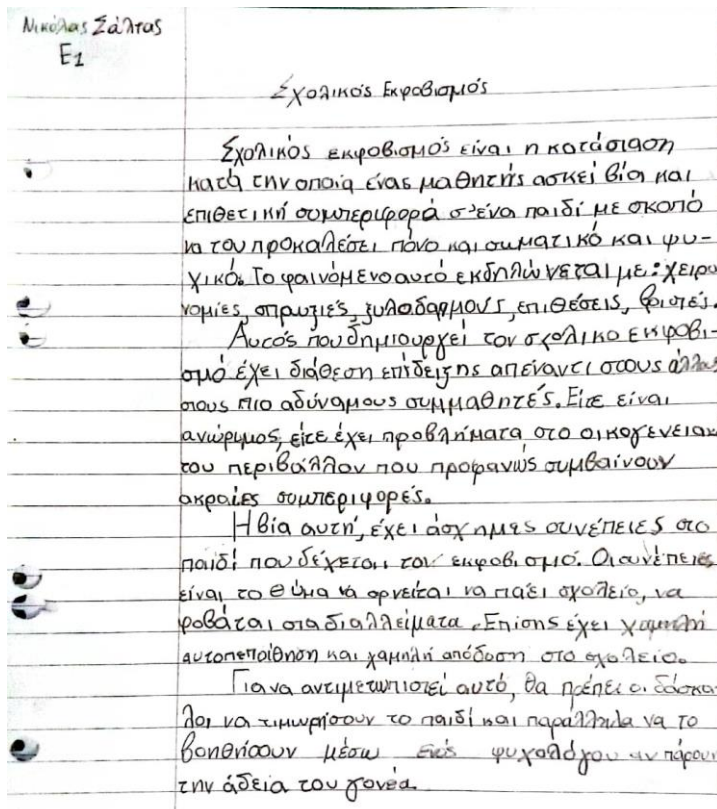 Νικόλας Σάλτας
Ε1
Σχολικός Εκφοβισμός
Σχολικός εκφοβισμός είναι η κατάσταση
κατά την οποία ένας μαθητής ασκεί βία και
επιθετική συμπεριφορά σ'ένα παιδί με σκοπό
να του προκαλέσει πόνο και σωματικό και ψυ-
χικό. Το φαινόμενο αυτό εκδηλώνεται με: χειρο
νομίες, σπρωξιές, ξυλοδαρμους, επιθέσεις, βρισιές.
Αυτός που δημιουργεί τον σχολικο εκφοβι-
σμό έχει διάθεση επίδειξης απέναντι στους άλλους
στους πιο αδύναμους συμμαθητές. Είτε είναι
ανώριμος, είτε έχει προβλήματα στο οικογενειακ
του περιβάλλον που προφανώς συμβαίνουν
ακραίες συμπεριφορές.
Η βία αυτή, έχει άσχημες συνέπειες στο
παιδί που δέχεται τον εκφοβισμό. Οι συνέπειες
είναι το θύμα να αρνείται να πάει σχολείο, να
φοβάται στα διαλλείματα. Επίσης έχει χαμηλή
αυτοπεποίθηση και χαμηλή απόδοση στο σχολείο.
Για να αντιμετωπιστεί αυτό, θα πρέπει οι δάσκα
λοι να τιμωρήσουν το παιδί και παράλληλα να το
βοηθήσουν μέσω ενός ψυχολόγου αν πάρουν
την άδεια του γονέα.